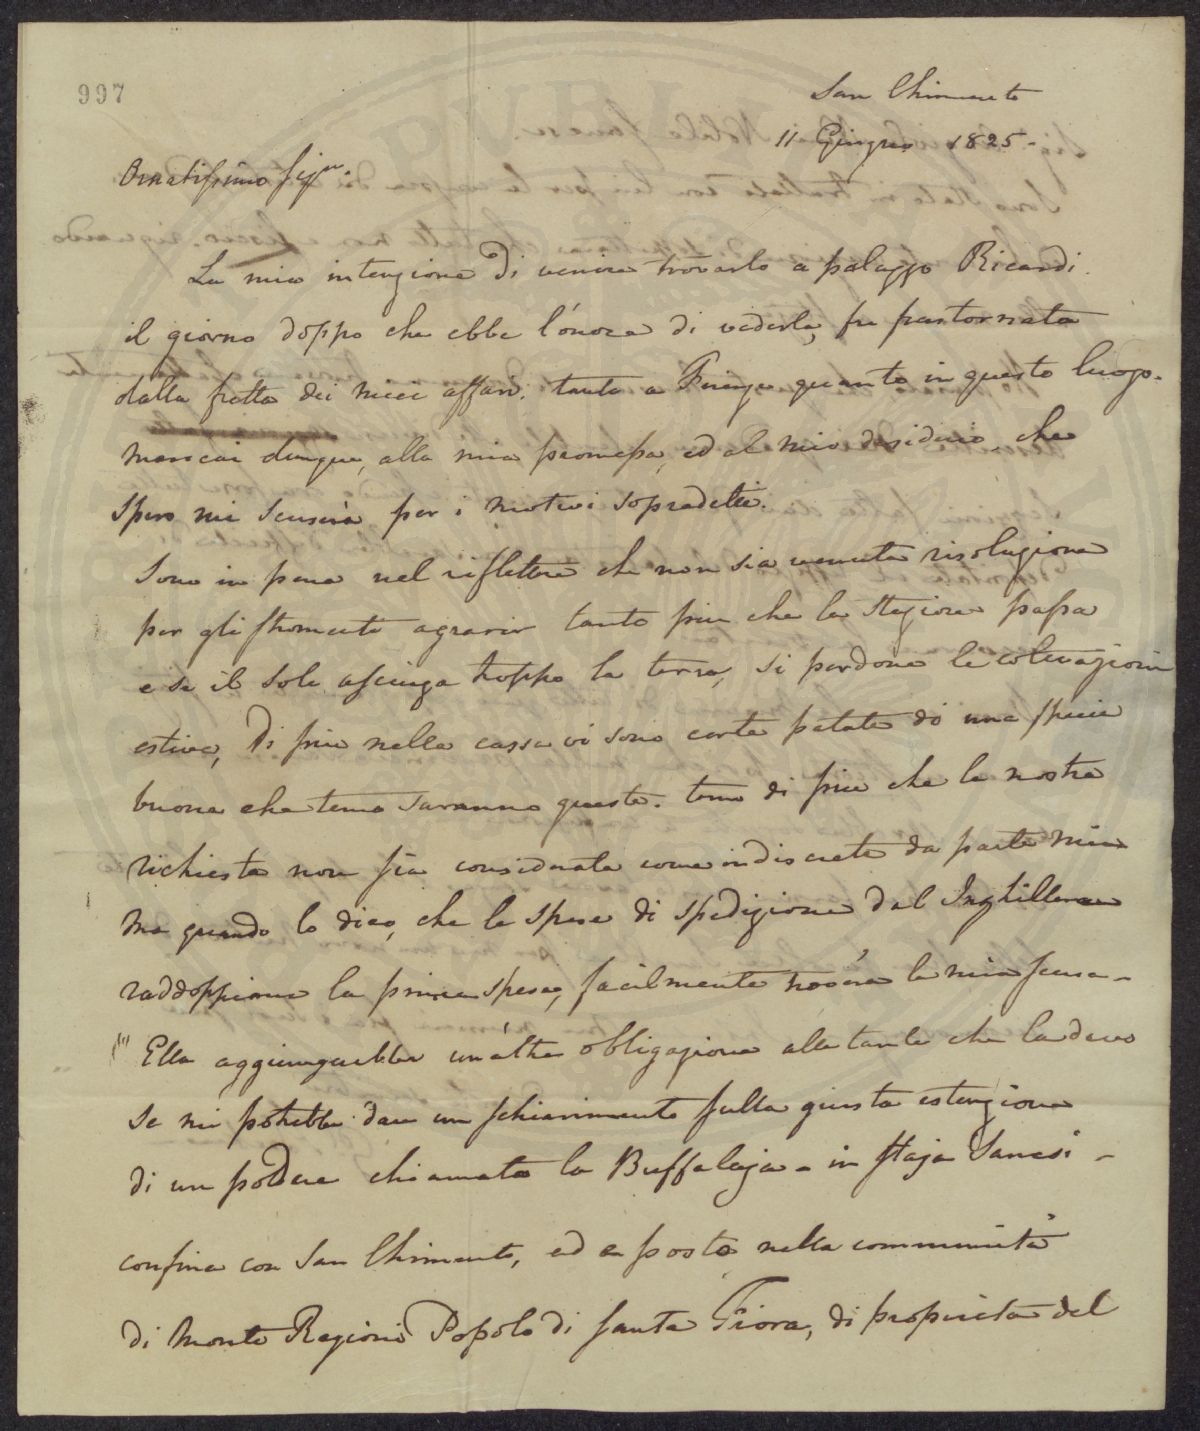 997
San Chimento
11 Giugno 1825.
Ornatissimo Sigre.
La mia intenzione di venire trovarlo a palazzo Ricardi
il giorno doppo che ebbe l'onore di vederla, fu frastornata
dalla fretta dei miei affari. tanto a Firenze quanto in questo luogo.
mancai dunque, alla mia promessa, ed al mio desiderio, che
spero mi scuserà per i motivi sopradetti.
Sono in pena nel riflettere che non sia venuta risoluzione
per gli stromenti agrarir tanto piu che la stagione passa
e se il sole asciuga troppo la terra, si perdone le coltivazioni
estive, Di piu nella cassa vi sono certe patate di una specie
buona che temo saranno guaste. temo di piu che la nostra
richiesta non sia considerata come indiscreta da parte mia
ma quando lo dico, che le spese di spedizione dal Inghilterra
raddoppiono la prima spesa, facilmente troverà la mia scusa -
Ella aggiungerebbe un'altra obligazione alle tante che la devo
se mi potrebbe dare un schiarimento sulla giusta estenzione
di un podere chiamato la Buffalaja - in staja Sanesi -
confina con San Chimento, ed e posto nella communità
di Monte Regioni Popolo di Santa Fiora, di proprieta del